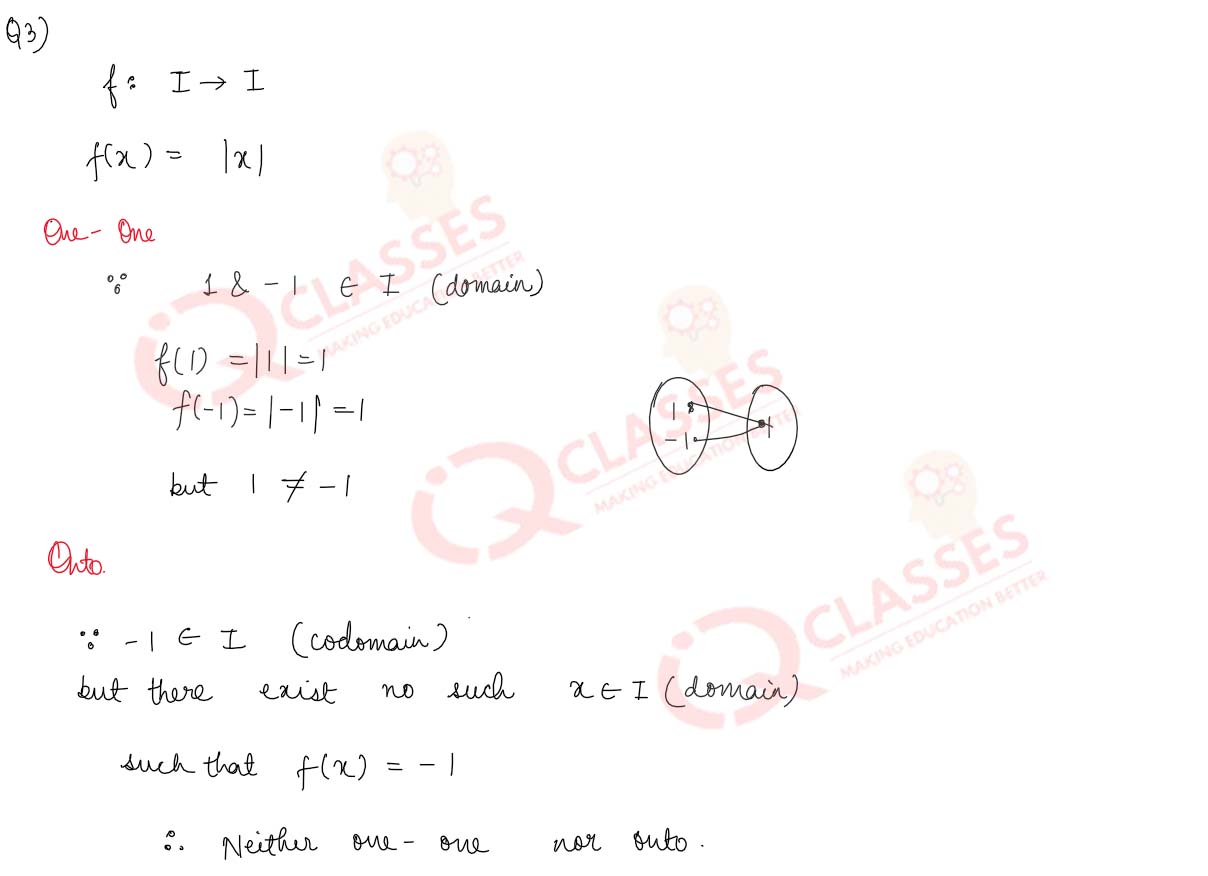 Q3)
f: I → I
f(x) = |x|
One-One
∵ 1 & -1 ∈ I (domain)
f(1) = |1| = 1
f(-1) = |-1| = 1
but 1 ≠ -1
1
-1
1
Onto.
∵ -1 ∈ I (codomain)
but there exist no such x ∈ I (domain)
such that f(x) = -1
∴ Neither one-one nor onto.
iQ CLASSES
MAKING EDUCATION BETTER
iQ CLASSES
MAKING EDUCATION BETTER
iQ CLASSES
MAKING EDUCATION BETTER